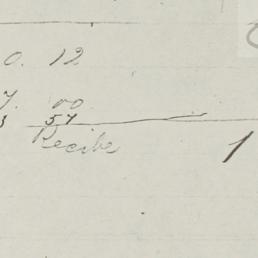 0. 12
7. 00
3 57
Recibe 1